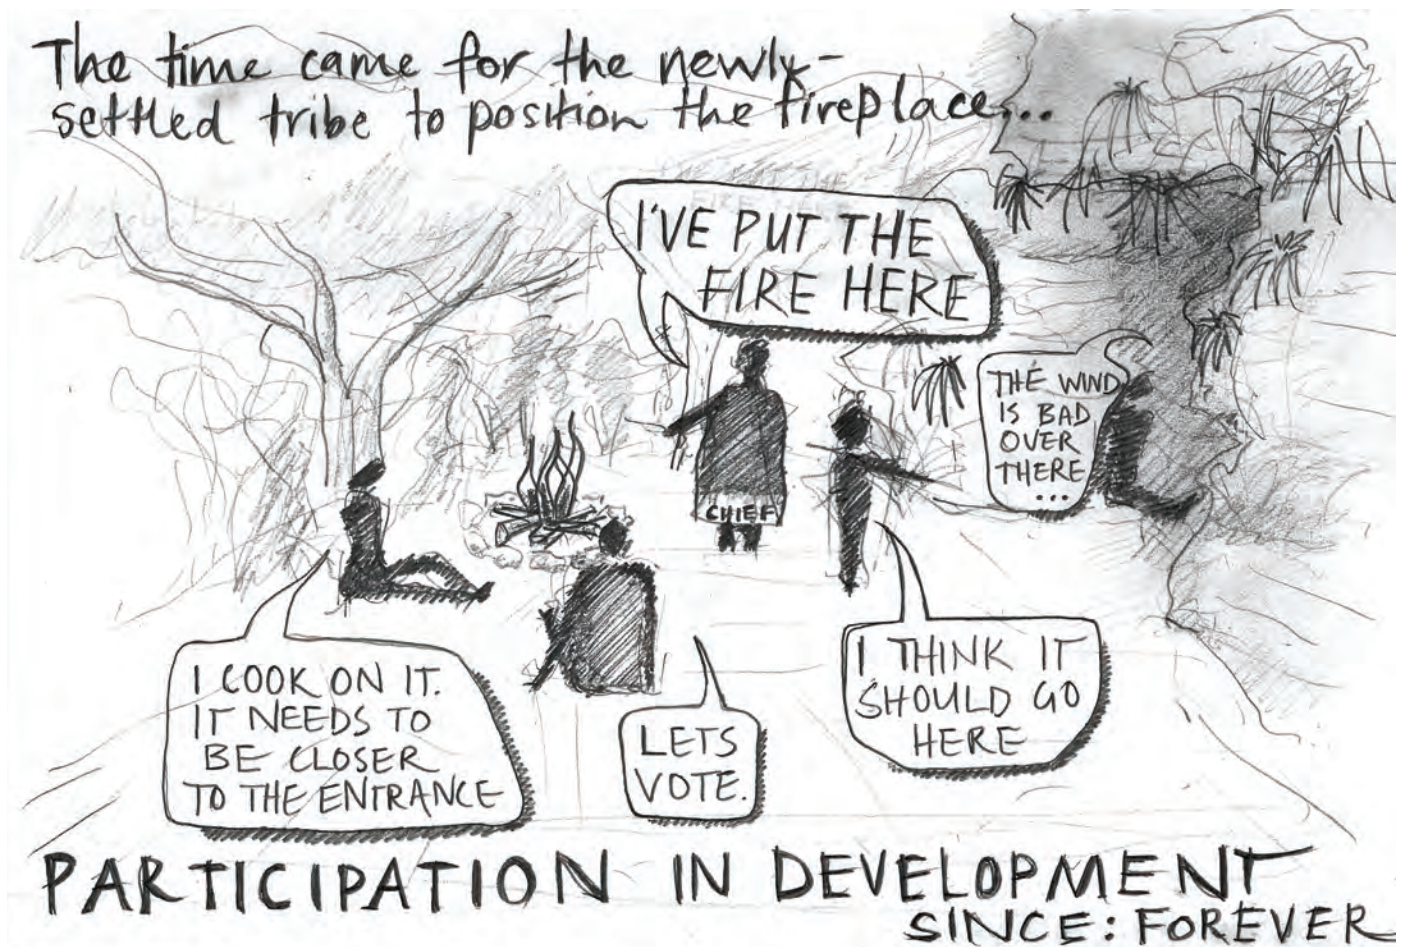 The time came for the newly-
settled tribe to position the fireplace...
I'VE PUT THE
FIRE HERE
THE WIND
IS BAD
OVER
THERE
...
CHIEF
I COOK ON IT.
IT NEEDS TO
BE CLOSER
TO THE ENTRANCE
LETS
VOTE.
I THINK IT
SHOULD GO
HERE
PARTICIPATION IN DEVELOPMENT
SINCE: FOREVER